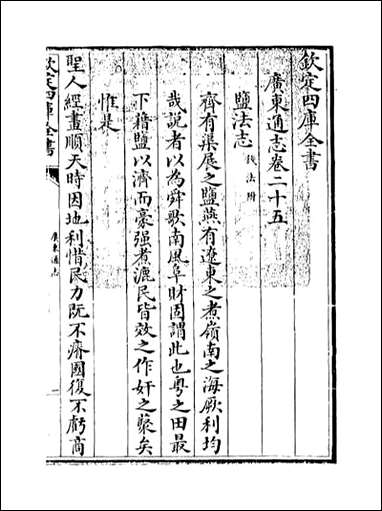 欽定四庫全書
廣東通志卷二十五
鹽法志 錢法附
齊有渠展之鹽燕有遼東之煮嶺南之海厥利均
哉說者以為舜歌南風阜財固謂此也粵之田最
下藉鹽以濟而豪强煮漉民皆效之作奸之藂矣
惟是
聖人經畫順天時因地利惜民力既不瘠國復不虧商
欽定四庫全書
廣東通志